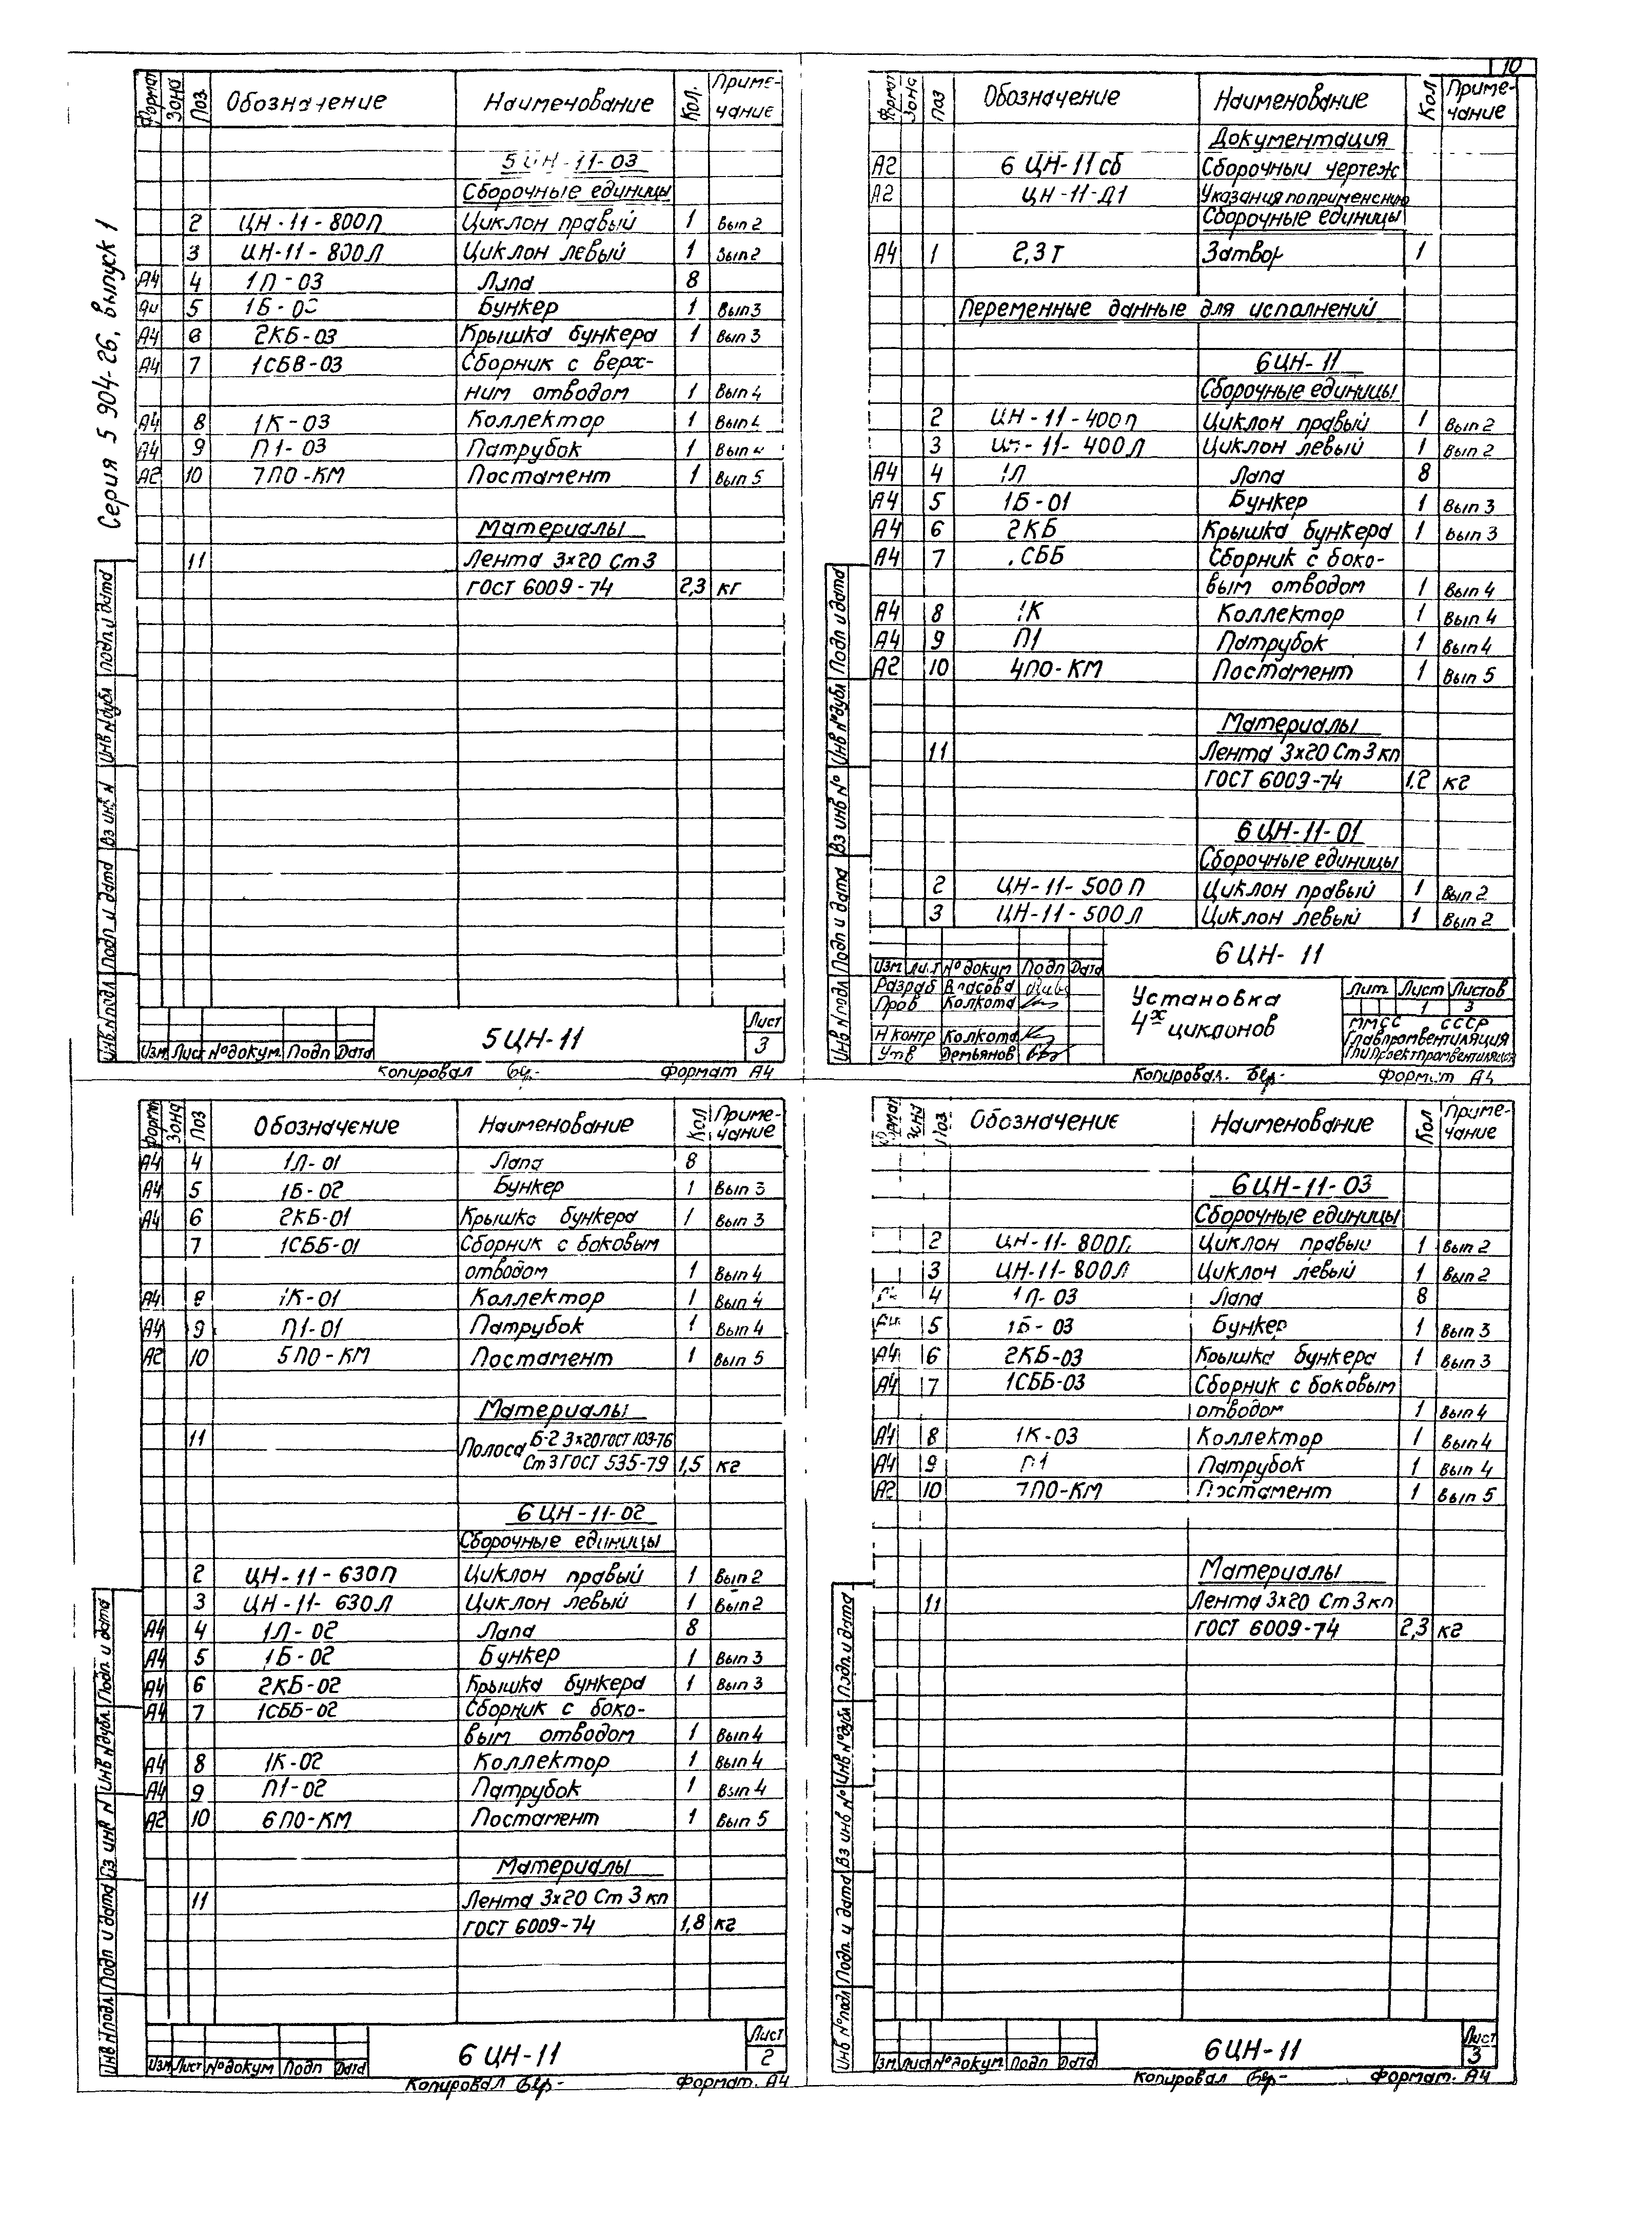 10
Серия 5 904-26, выпуск 1
Формат Зона Поз. Обозначение Наименование Кол. Приме-
чание
5 ЦН-11-03
Сборочные единицы
2 ЦН-11-800П Циклон правый 1 Вып 2
3 ЦН-11-800Л Циклон левый 1 Вып 2
А4 4 1Л-03 Лапа 8
А4 5 Бункер 1 Вып 3
А4 6 2КБ-03 Крышка бункера 1 Вып 3
А4 7 1СБВ-03 Сборник с верх-
ним отводом 1 Вып 4
А4 8 1К-03 Коллектор 1 Вып 4
А4 9 П1-03 Патрубок 1 Вып 4
А2 10 7ПО-КМ Постамент 1 Вып 5
Материалы
11 Лента 3х20 Ст 3
ГОСТ 6009-74 2,3 кг
Инв N подл Подп и дата Вз инв N Инв N дубл Подп и дата
Изм Лист № докум. Подп Дата
5 ЦН-11
Лист
3
Копировал Формат А4
Формат Зона Поз Обозначение Наименование Кол Приме-
чание
Документация
А2 6 ЦН-11 сб Сборочный чертеж
А2 ЦН-11-Д1 Указания по применению
Сборочные единицы
А4 1 2,3 Т Затвор 1
Переменные данные для исполнений
6 ЦН-11
Сборочные единицы
2 ЦН-11-400п Циклон правый 1 Вып 2
3 ЦН-11-400Л Циклон левый 1 Вып 2
А4 4 1Л Лапа 8
А4 5 1Б-01 Бункер 1 Вып 3
А4 6 2КБ Крышка бункера 1 Вып 3
А4 7 СББ Сборник с боко-
вым отводом 1 Вып 4
А4 8 1К Коллектор 1 Вып 4
А4 9 П1 Патрубок 1 Вып 4
А2 10 4ПО-КМ Постамент 1 Вып 5
Материалы
11 Лента 3х20 Ст 3 кп
ГОСТ 6009-74 1,2 кг
6 ЦН-11-01
Сборочные единицы
2 ЦН-11-500 П Циклон правый 1 Вып 2
3 ЦН-11-500 Л Циклон левый 1 Вып 2
Инв N подл Подп и дата Вз инв № Инв № дубл Подп и дата
6 ЦН-11
Изм Лист № докум Подп Дата
Разраб Власова
Пров Колкота
Н контр Колкота
Утв Демьянов
Установка
4х циклонов
Лит. Лист Листов
1 3
ММСС СССР
Главпромвентиляция
Копировал. Формат А4
Формат Зона Поз Обозначение Наименование Кол Приме-
чание
А4 4 1Л-01 Лапа 8
А4 5 1Б-02 Бункер 1 Вып 3
А4 6 2КБ-01 Крышка бункера 1 Вып 3
7 1СББ-01 Сборник с боковым
отводом 1 Вып 4
А4 8 1К-01 Коллектор 1 Вып 4
А4 9 П1-01 Патрубок 1 Вып 4
А2 10 5ПО-КМ Постамент 1 Вып 5
Материалы
11 Полоса Б-2 3х20 ГОСТ 103-76
Ст 3 ГОСТ 535-79 1,5 кг
6 ЦН-11-02
Сборочные единицы
2 ЦН-11-630П Циклон правый 1 Вып 2
3 ЦН-11-630Л Циклон левый 1 Вып 2
А4 4 1Л-02 Лапа 8
А4 5 1Б-02 Бункер 1 Вып 3
А4 6 2КБ-02 Крышка бункера 1 Вып 3
А4 7 1СББ-02 Сборник с боко-
вым отводом 1 Вып 4
А4 8 1К-02 Коллектор 1 Вып 4
А4 9 П1-02 Патрубок 1 Вып 4
А2 10 6ПО-КМ Постамент 1 Вып 5
Материалы
11 Лента 3х20 Ст 3 кп
ГОСТ 6009-74 1,8 кг
Инв N подл Подп и дата Вз инв N Инв N дубл. Подп. и дата
Изм Лист № докум Подп Дата
6 ЦН-11
Лист
2
Копировал Формат. А4
Формат Зона Поз. Обозначение Наименование Кол Приме-
чание
6 ЦН-11-03
Сборочные единицы
2 ЦН-11-800П Циклон правый 1 Вып 2
3 ЦН-11-800Л Циклон левый 1 Вып 2
4 1Л-03 Лапа 8
5 1Б-03 Бункер 1 Вып 3
А4 6 2КБ-03 Крышка бункера 1 Вып 3
А4 7 1СББ-03 Сборник с боковым
отводом 1 Вып 4
А4 8 1К-03 Коллектор 1 Вып 4
А4 9 П1 Патрубок 1 Вып 4
А2 10 7ПО-КМ Постамент 1 Вып 5
Материалы
11 Лента 3х20 Ст 3 кп
ГОСТ 6009-74 2,3 кг
Инв № подл Подп. и дата Вз инв № Инв № дубл Подп. и дата
Изм Лист № докум. Подп Дата
6 ЦН-11
Лист
3
Копировал Формат. А4